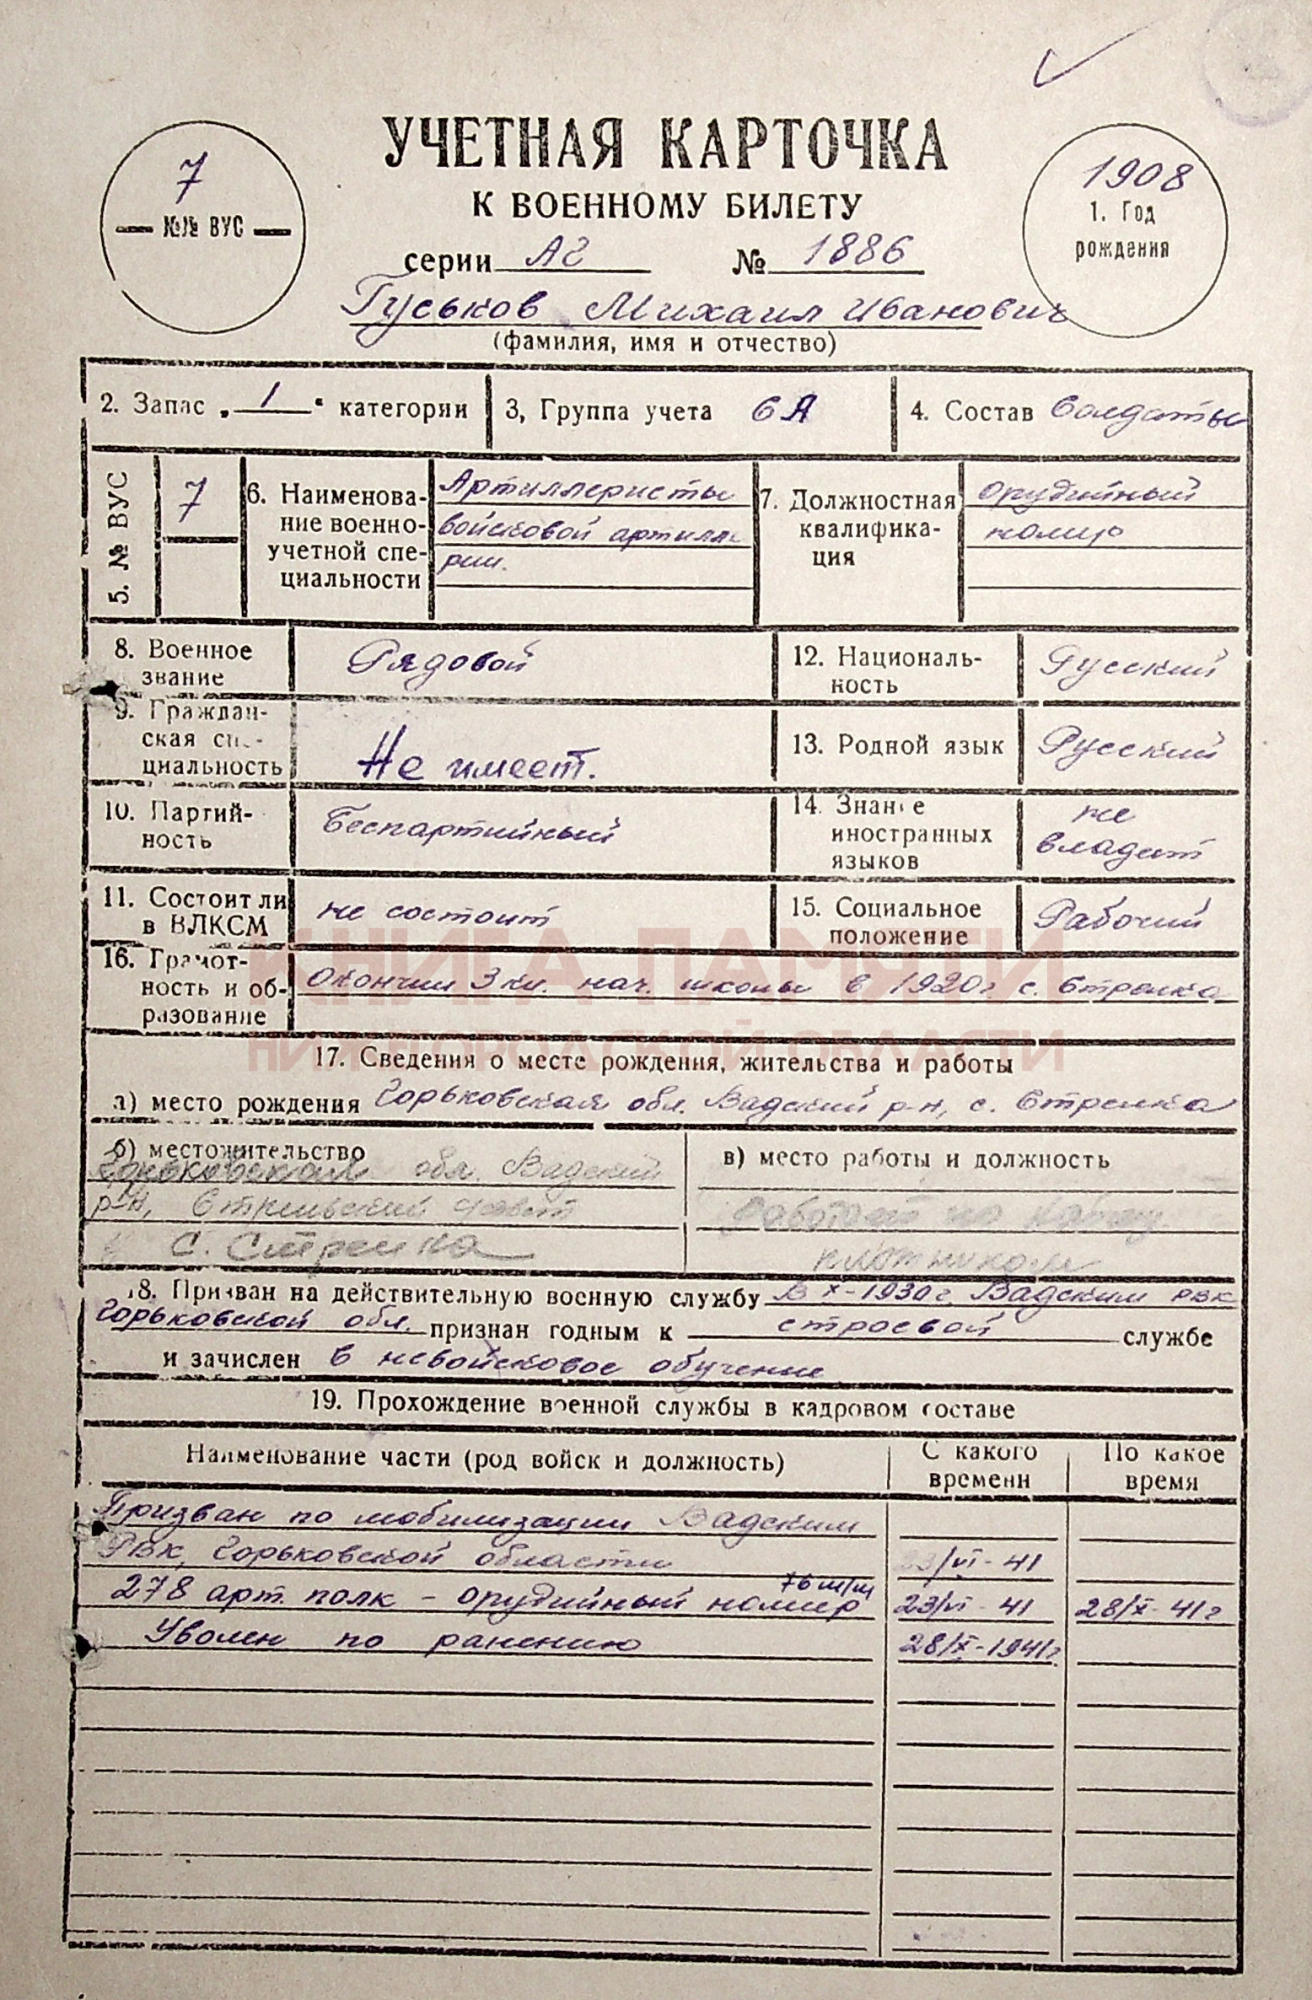 УЧЕТНАЯ КАРТОЧКА
К ВОЕННОМУ БИЛЕТУ
7
№№ ВУС
1908
1. Год
рождения
серии АГ № 1886
Гуськов Михаил Иванович
(фамилия, имя и отчество)
2. Запас „1“ категории
3, Группа учета 6А
4. Состав Солдаты
5. № ВУС 7
6. Наименова-
ние военно-
учетной спе-
циальности
Артиллеристы
войсковой артилле
рии.
7. Должностная
квалифика-
ция
орудийный
номер
8. Военное
звание
Рядовой
12. Националь-
ность
Русский
9. Граждан-
ская спе-
циальность
Не имеет.
13. Родной язык
Русский
10. Партий-
ность
Беспартийный
14. Знание
иностранных
языков
не
владеет
11. Состоит ли
в ВЛКСМ
не состоит
15. Социальное
положение
Рабочий
КНИГА ПАМЯТИ
НИЖЕГОРОДСКОЙ ОБЛАСТИ
16. Грамот-
ность и об-
разование
Окончил 3 кл. нач. школы в 1920 г с. Стрелка
17. Сведения о месте рождения, жительства и работы
а) место рождения Горьковская обл. Вадский р-н, с. Стрелка
б) местожительство
Горьковская обл. Вадский
р-н, Стрельский
с. Стрелка
в) место работы и должность
плотником
18. Призван на действительную военную службу В X-1930 г. Вадским РВК
Горьковской обл. признан годным к строевой службе
и зачислен в невойсковое обучение
19. Прохождение военной службы в кадровом составе
Наименование части (род войск и должность)
С какого
времени
По какое
время
Призван по мобилизации Вадским
РВК, Горьковской области 23/VI-41
76 м/м
278 арт. полк - орудийный номер 23/VI-41 28/X-41 г
Уволен по ранению 28/X-1941 г.